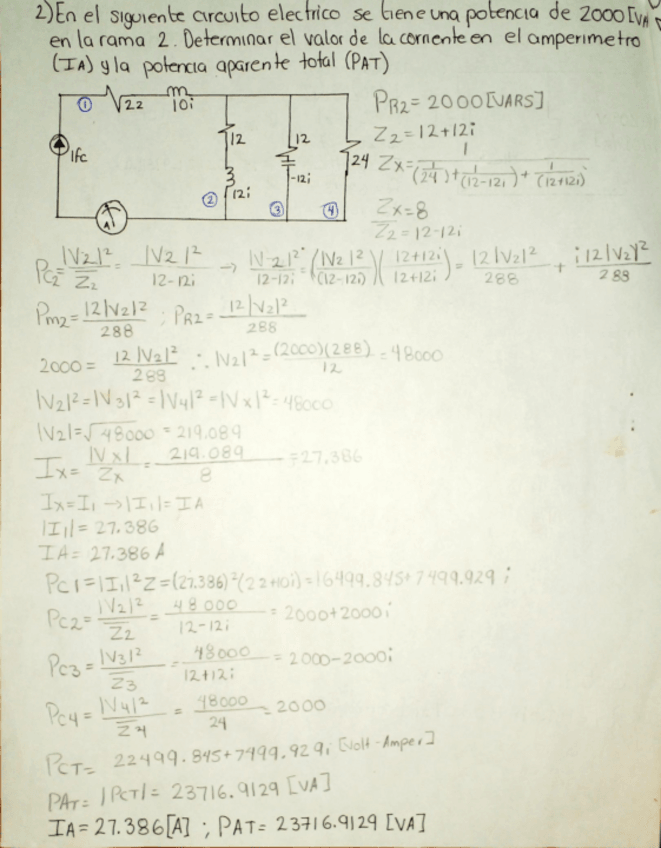 2) En el siguiente circuito electrico se tiene una potencia de 2000 [VA
en la rama 2. Determinar el valor de la corriente en el amperimetro
(IA) y la potencia aparente total (PAT)
① 22 10i
1fc
12
12i
②
12
-12i
③
24
④
A
PR2 = 2000 [VARS]
Z2 = 12+12i
Zx = 1 / ((1/24) + 1/(12-12i) + 1/(12+12i))
Zx = 8
Z̅2 = 12-12i
PC2 = |V2|²/Z̅2 = |V2|²/12-12i → |V2|²/12-12i = (|V2|²/(12-12i))(12+12i/12+12i) = 12|V2|²/288 + i12|V2|²/288
Pm2 = 12|V2|²/288 ; PR2 = 12|V2|²/288
2000 = 12|V2|²/288 ∴ |V2|² = (2000)(288)/12 = 48000
|V2|² = |V3|² = |V4|² = |Vx|² = 48000
|V2| = √48000 = 219.089
Ix = |Vx|/Zx = 219.089/8 = 27.386
Ix = I1 → |I1| = IA
|I1| = 27.386
IA = 27.386 A
PC1 = |I1|²Z = (27.386)²(22+10i) = 16499.845+7499.929i
PC2 = |V2|²/Z̅2 = 48000/12-12i = 2000+2000i
PC3 = |V3|²/Z̅3 = 48000/12+12i = 2000-2000i
PC4 = |V4|²/Z̅4 = 48000/24 = 2000
PCT = 22499.845+7499.929i [Volt-Amper]
PAT = |PCT| = 23716.9129 [VA]
IA = 27.386 [A] ; PAT = 23716.9129 [VA]